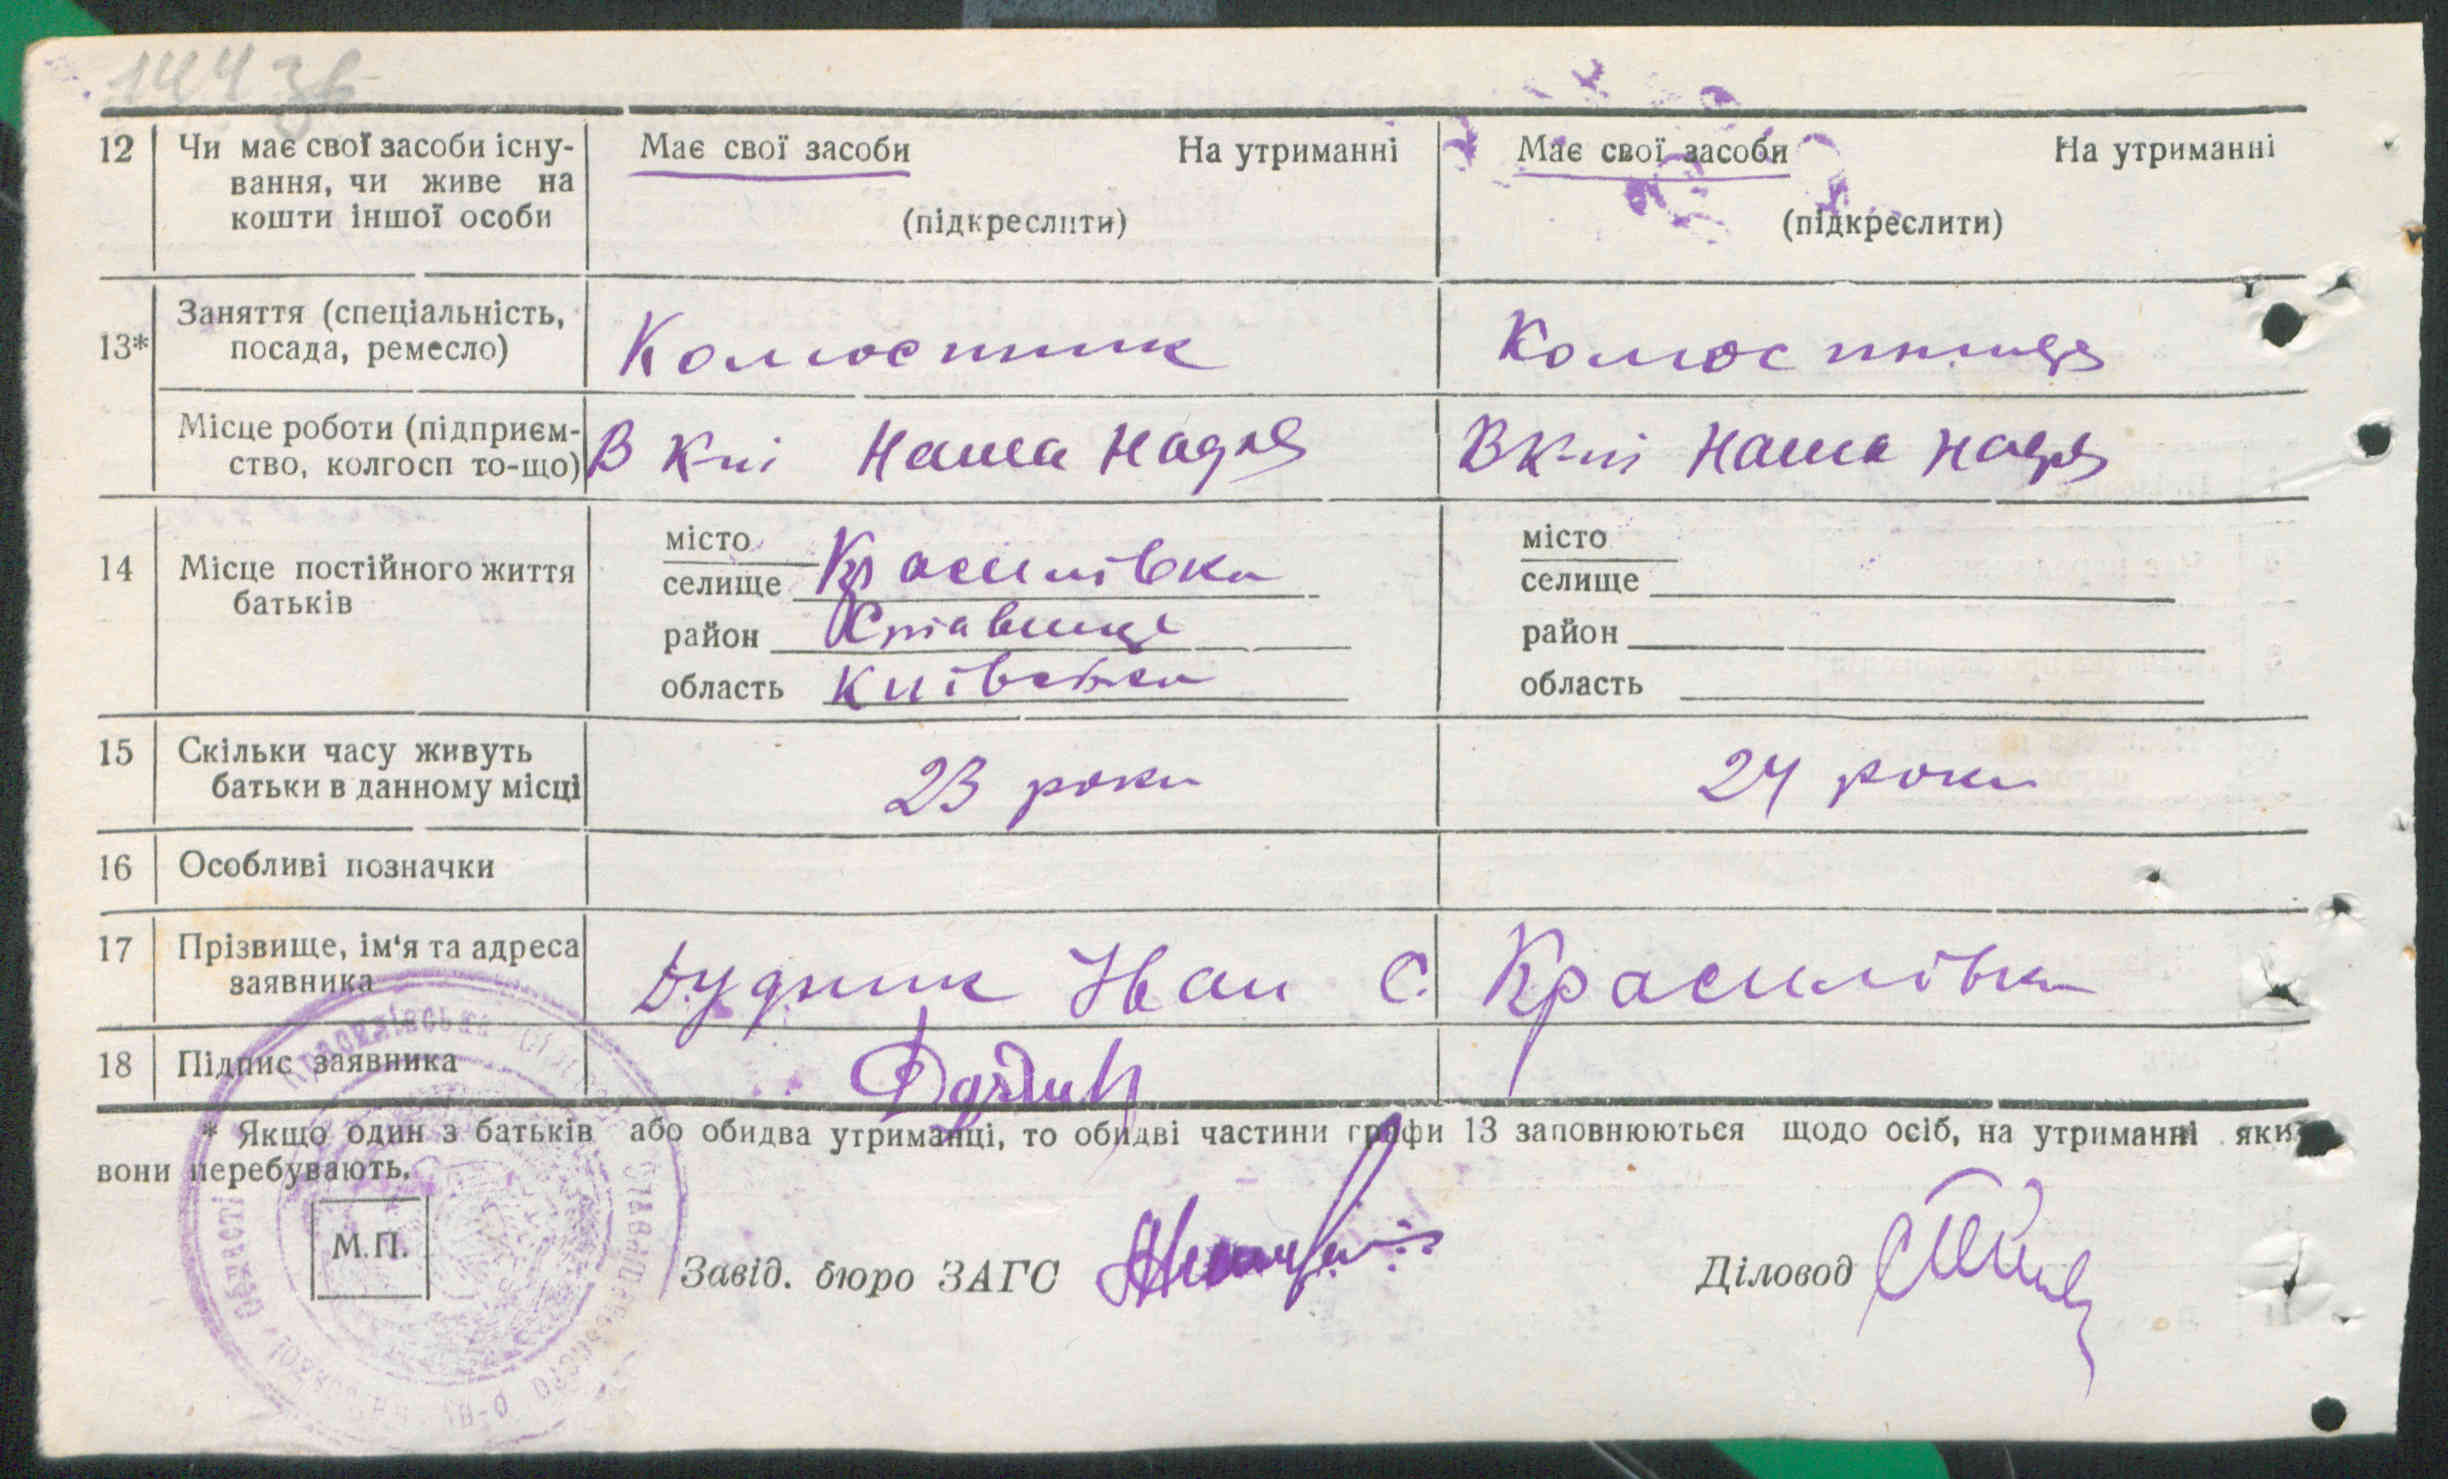 144 зв
12 Чи має свої засоби існу- Має свої засоби На утриманні Має свої засоби На утриманні
вання, чи живе на
кошти іншої особи (підкреслити) (підкреслити)
13* Заняття (спеціальність,
посада, ремесло) Колгоспник Колгоспниця
Місце роботи (підприєм-
ство, колгосп то-що) В к-пі Наша Надія В к-пі Наша Надія
14 Місце постійного життя
батьків
місто місто
селище Красилівка селище
район Ставище район
область Київська область
15 Скільки часу живуть
батьки в данному місці 23 роки 24 роки
16 Особливі позначки
17 Прізвище, ім'я та адреса
заявника Дудник Іван С. Красилівка
18 Підпис заявника
* Якщо один з батьків або обидва утриманці, то обидві частини графи 13 заповнюються щодо осіб, на утриманні яких
вони перебувають.
М.П.
Завід. бюро ЗАГС Діловод